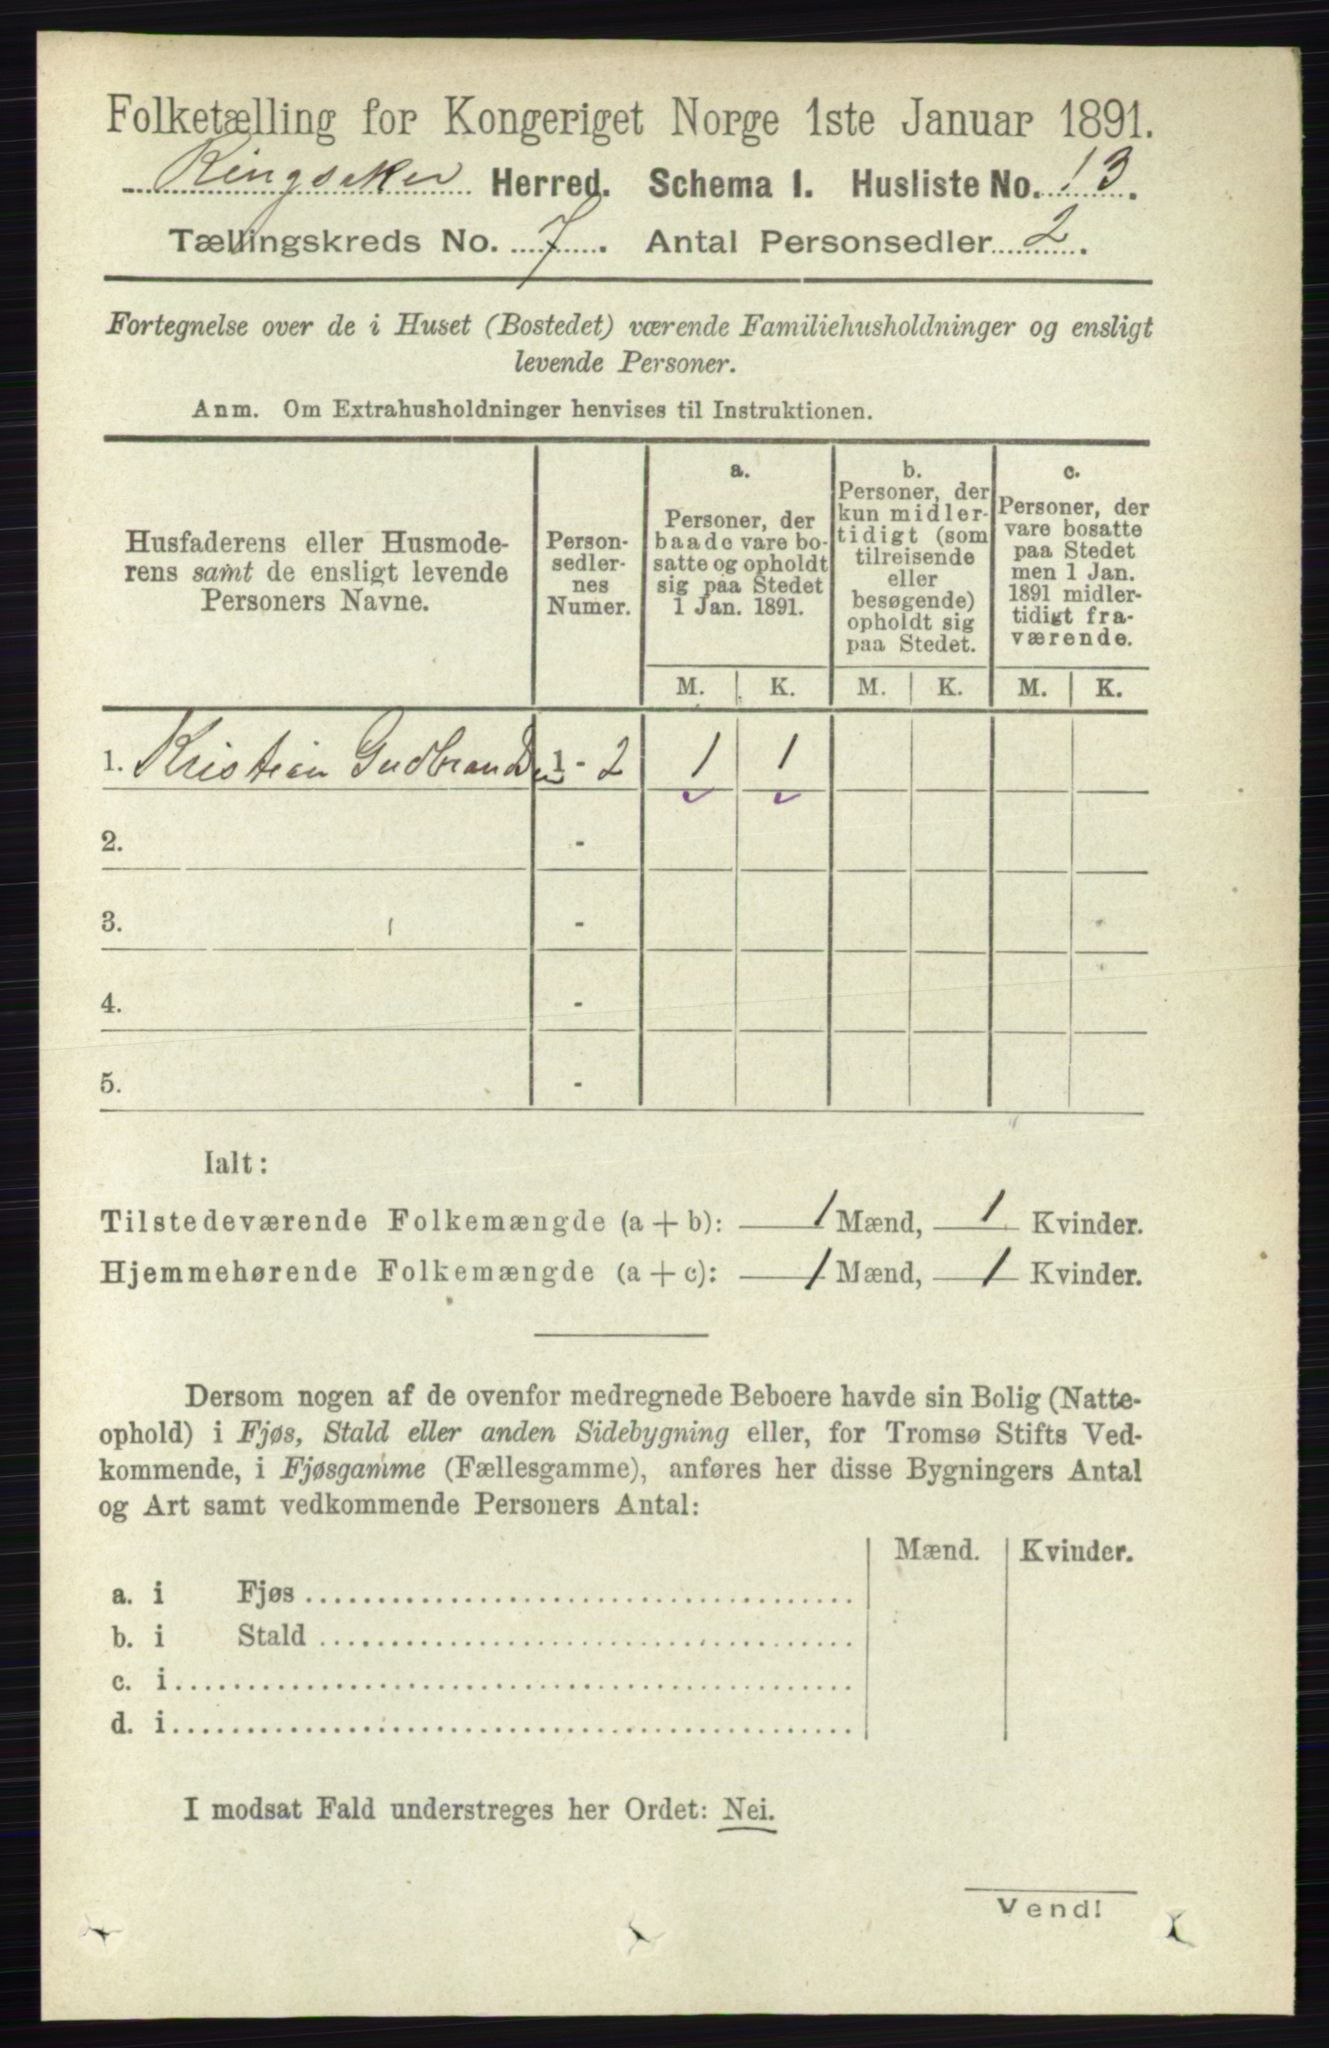 Folketælling for Kongeriget Norge 1ste Januar 1891.
Ringsaker Herred. Schema I. Husliste No. 13.
Tællingskreds No. 7. Antal Personsedler 2.
Fortegnelse over de i Huset (Bostedet) værende Familiehusholdninger og ensligt
levende Personer.
Anm. Om Extrahusholdninger henvises til Instruktionen.
Husfaderens eller Husmode-
rens samt de ensligt levende
Personers Navne.
Person-
sedler-
nes
Numer.
a.
Personer, der
baade vare bo-
satte og opholdt
sig paa Stedet
1 Jan. 1891.
b.
Personer, der
kun midler-
tidigt (som
tilreisende
eller
besøgende)
opholdt sig
paa Stedet.
c.
Personer, der
vare bosatte
paa Stedet
men 1 Jan.
1891 midler-
tidigt fra-
værende.
M. K. M. K. M. K.
1. Kristian Gudbrandsen 1 - 2 1 1
2. -
3. -
4. -
5. -
Ialt:
Tilstedeværende Folkemængde (a + b): 1 Mænd, 1 Kvinder.
Hjemmehørende Folkemængde (a + c): 1 Mænd, 1 Kvinder.
Dersom nogen af de ovenfor medregnede Beboere havde sin Bolig (Natte-
ophold) i Fjøs, Stald eller anden Sidebygning eller, for Tromsø Stifts Ved-
kommende, i Fjøsgamme (Fællesgamme), anføres her disse Bygningers Antal
og Art samt vedkommende Personers Antal:
Mænd. Kvinder.
a. i Fjøs
b. i Stald
c. i
d. i
I modsat Fald understreges her Ordet: Nei.
Vend!